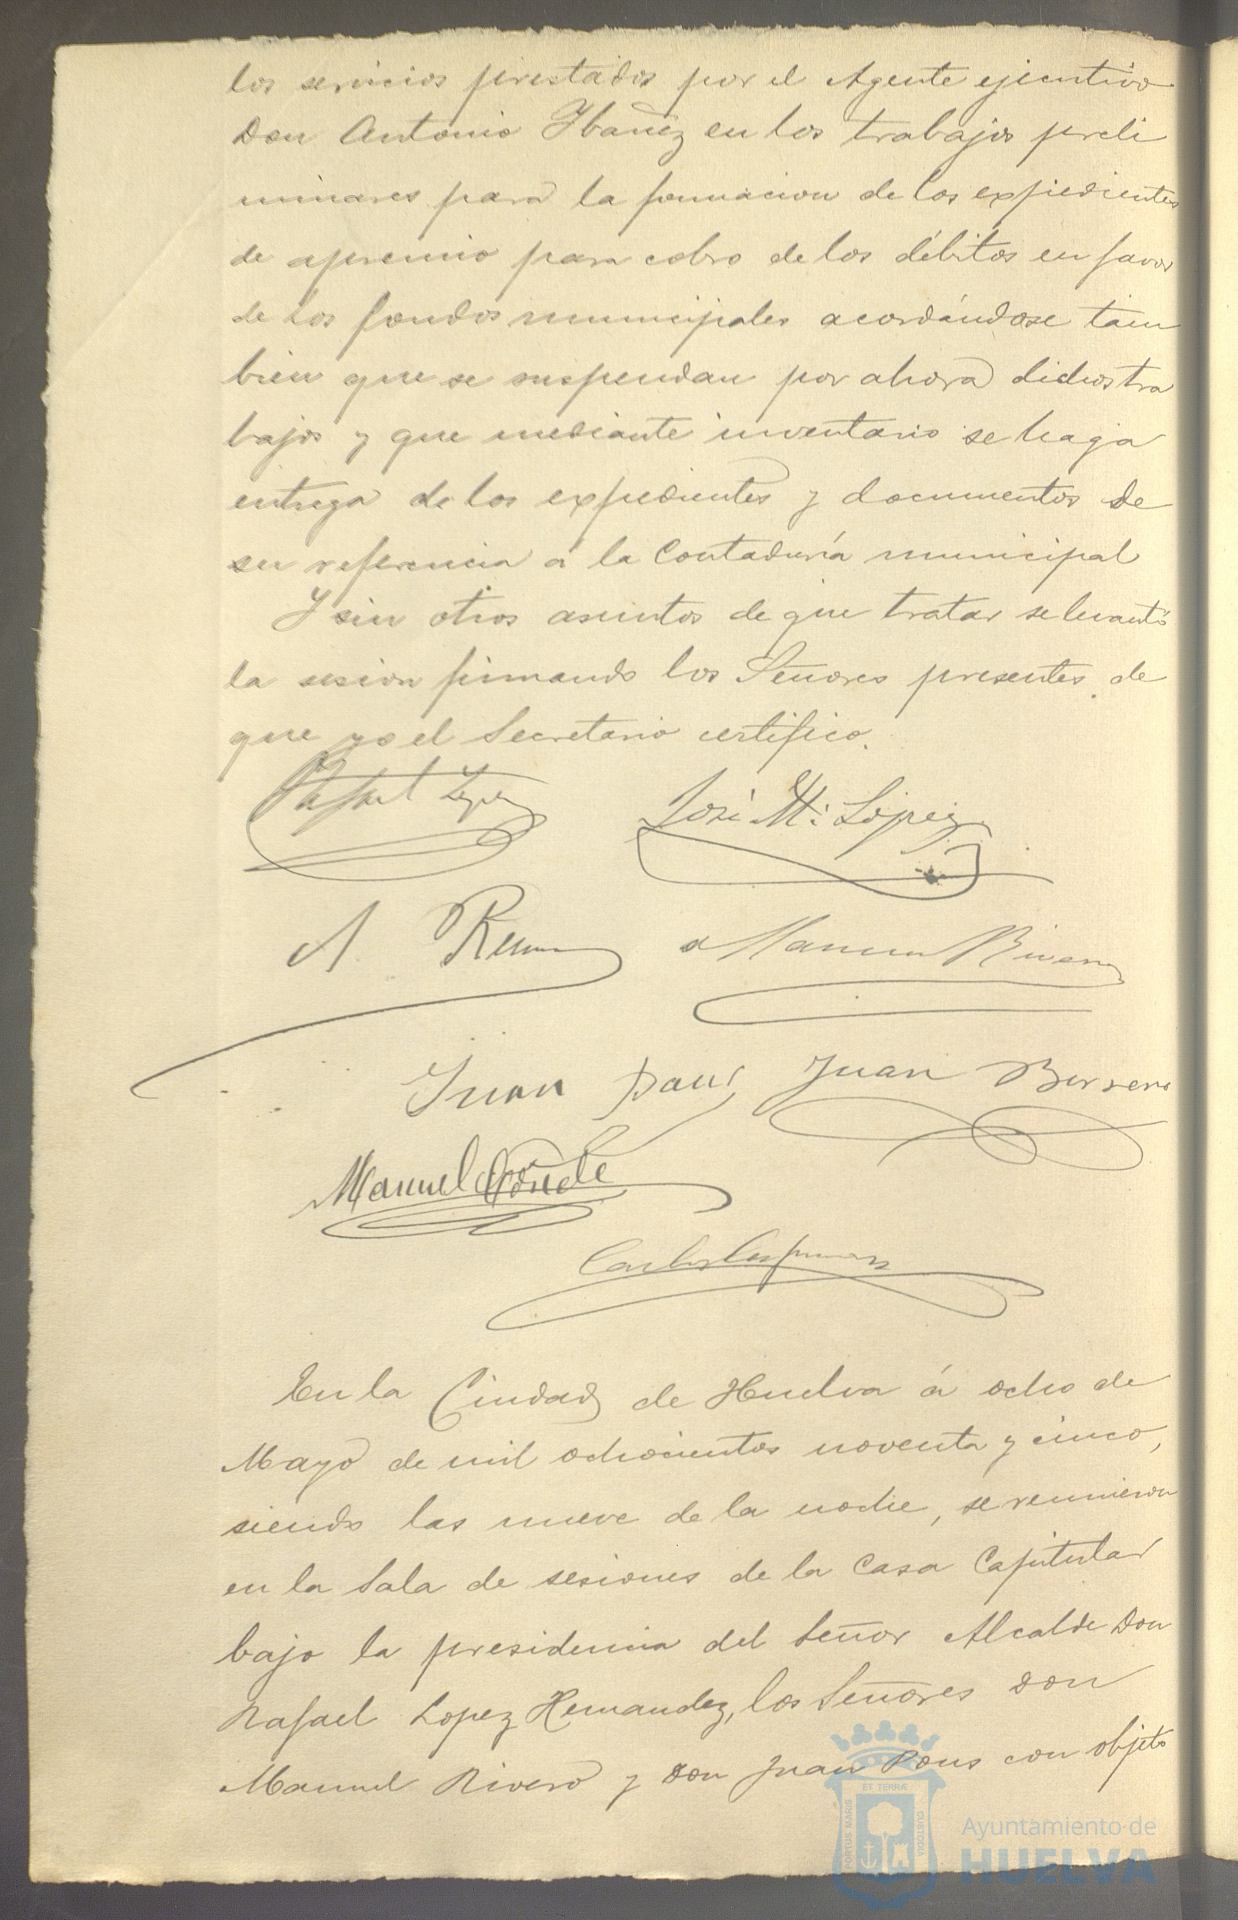 los servicios prestados por el Agente ejecutivo
Don Antonio Ybañez en los trabajos preli
minares para la formacion de los expedientes
de apremio para cobro de los débitos en favor
de los fondos municipales acordándose tam
bien que se suspendan por ahora dichos tra
bajos y que mediante inventario se haga
entrega de los expedientes y documentos de
su referencia á la Contaduría municipal
Y sin otros asuntos de que tratar se levantó
la sesion firmando los Señores presentes de
que yo el Secretario certifico.
Rafael Lopez
José Mª Lópiez
A.
Manuel Rivero
Juan Pous
Juan Borrero
Manuel Conde
Carlos
En la Ciudad de Huelva á ocho de
Mayo de mil ochocientos noventa y cinco,
siendo las nueve de la noche, se reunieron
en la Sala de sesiones de la Casa Capitular
bajo la presidencia del Señor Alcalde Don
Rafael Lopez Hernandez, los Señores Don
Manuel Rivero y Don Juan Pous con objeto
ET TERRÆ
PORTUS MARIS
CUSTODIA
Ayuntamiento de
HUELVA